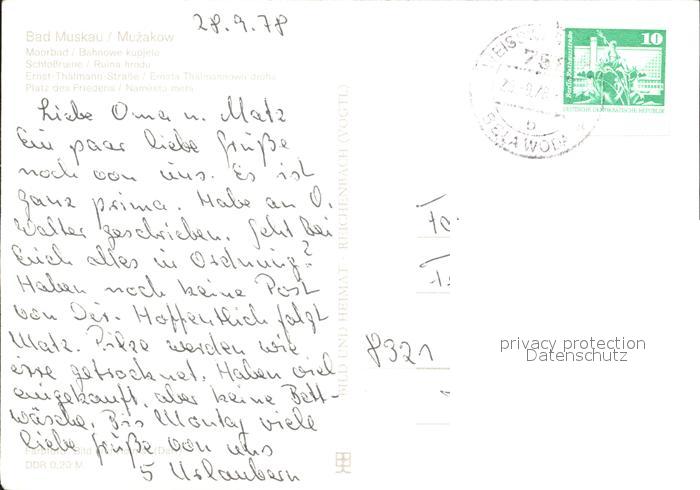 28.9.78
Bad Muskau / Mužakow
Moorbad / Bahnowe kupjele
Schloßruine / Ruina hrodu
Ernst-Thälmann-Straße / Ernsta Thälmannowa dróha
Platz des Friedens / Naměsto měra
Liebe Oma u. Matz
Ein paar liebe Grüße
noch von uns. Es ist
ganz prima. Habe an O.
Walter geschrieben. Geht bei
Euch alles in Ordnung?
Haben noch keine Post
von Dir. Hoffentlich folgt
Matz. Pilze werden wie
irre getrocknet. Haben viel
eingekauft, aber keine Bett-
wäsche. Bis Montag viele
liebe Grüße von uns
5 Urlaubern
DDR 0,20 M
BILD UND HEIMAT · REICHENBACH (VOGTL)
75
b
BELA WODA
10
Berlin, Rathausstraße
DEUTSCHE DEMOKRATISCHE REPUBLIK
8321
privacy protection
Datenschutz